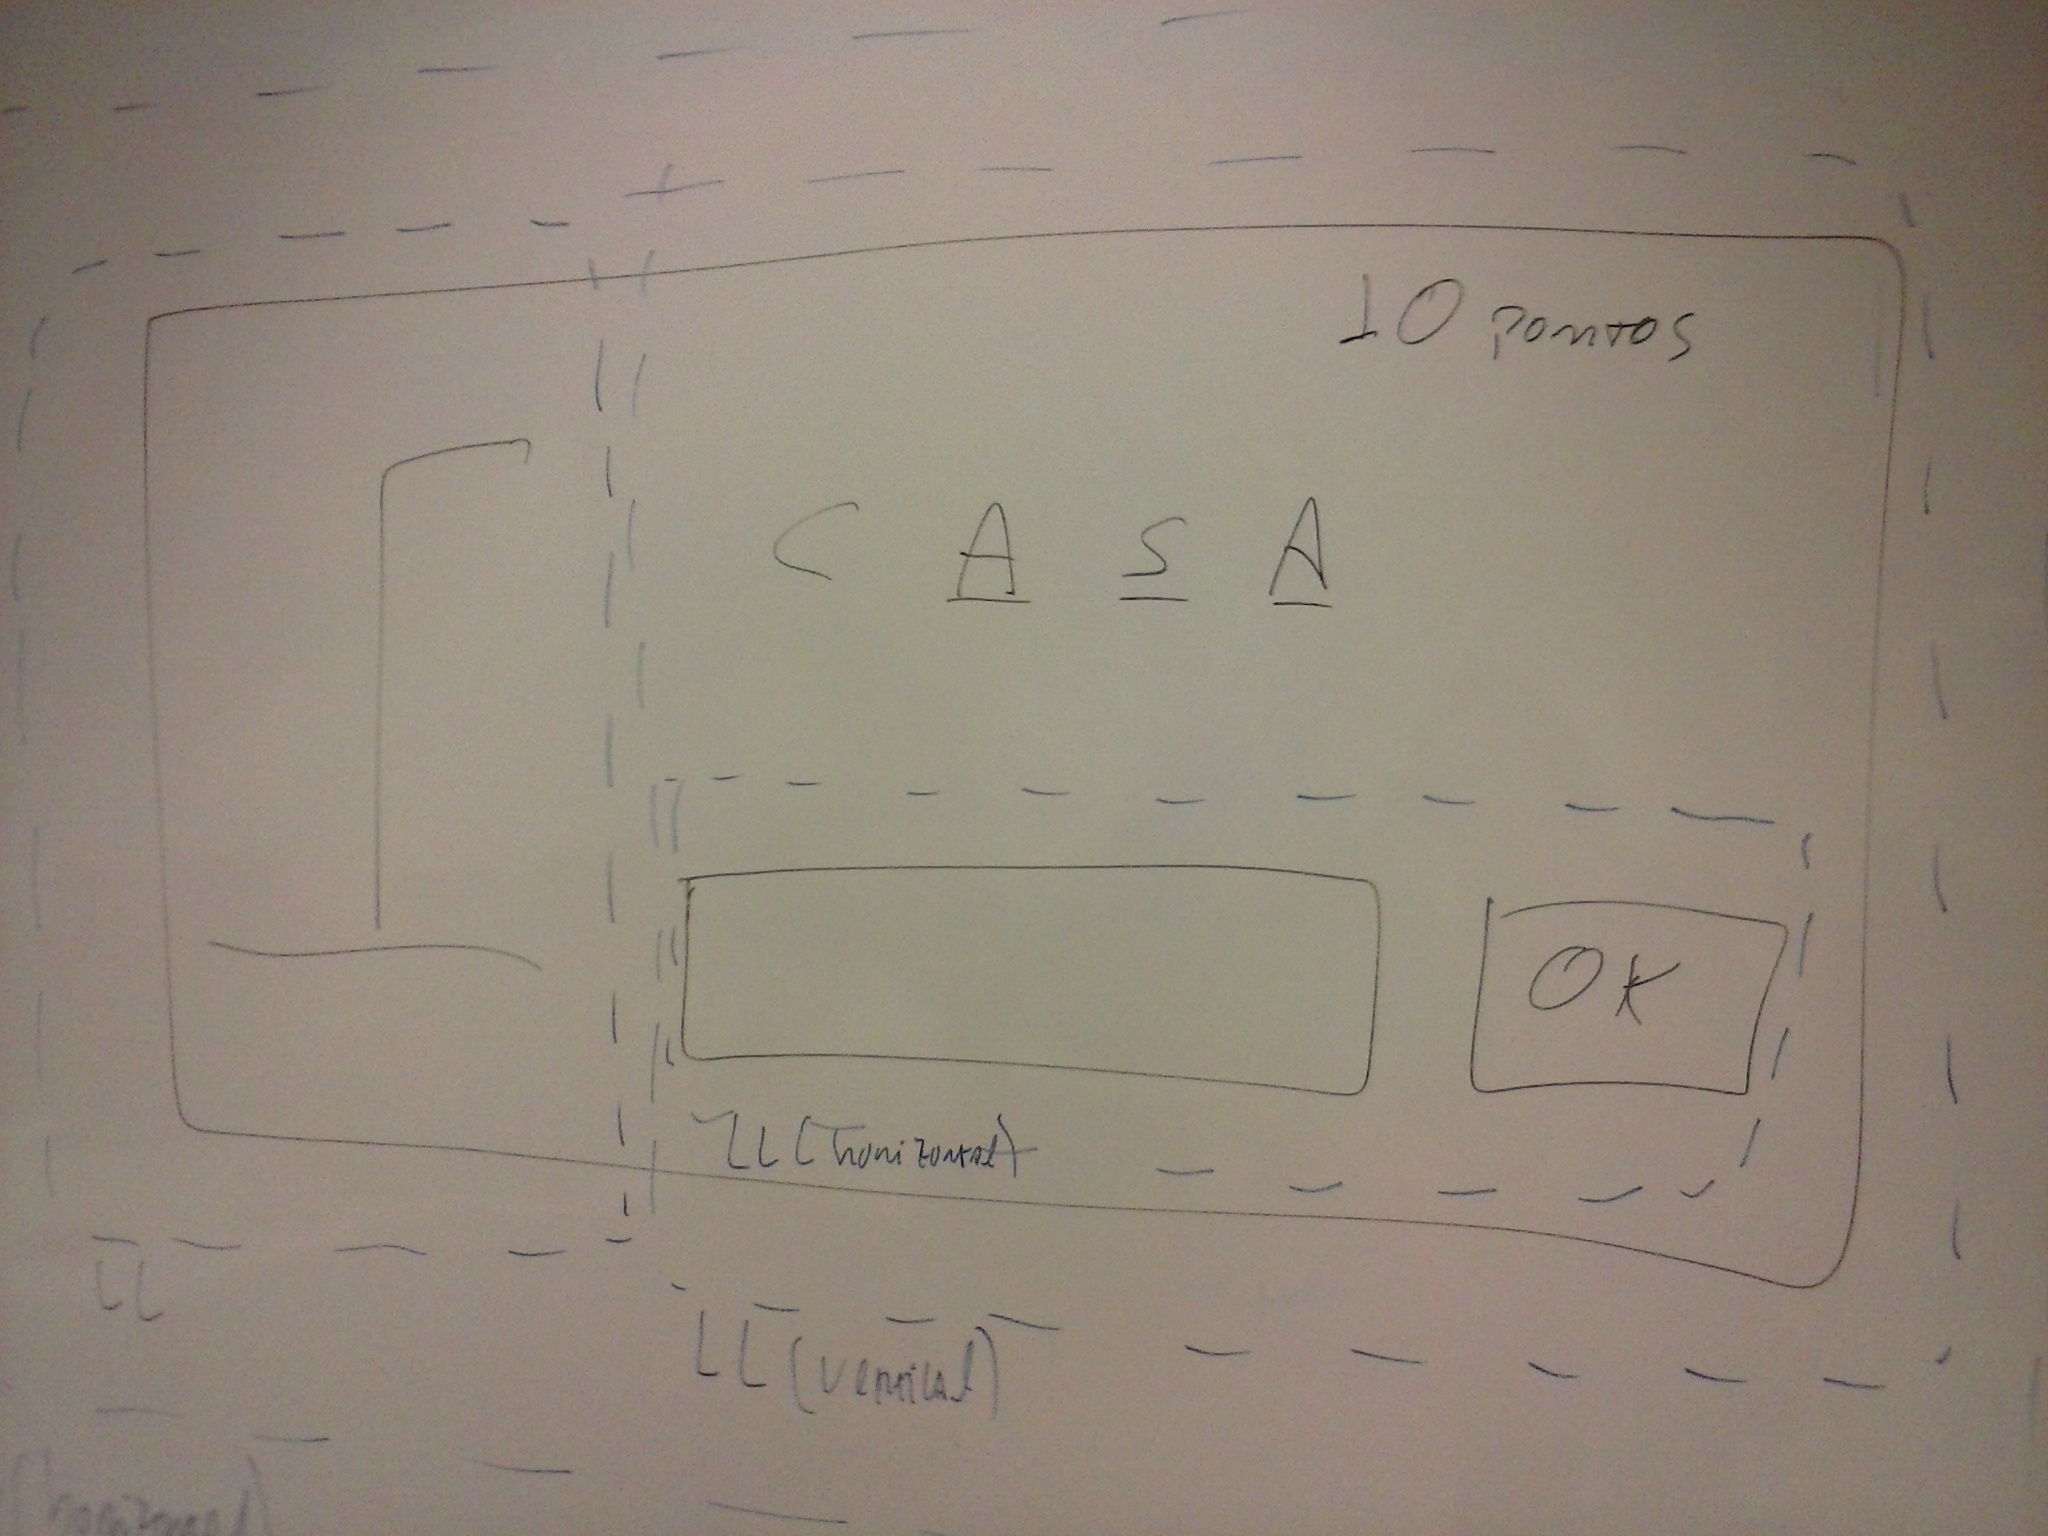 10 pontos
C A S A
OK
LL (horizontal)
LL
LL (vertical)
(horizontal)